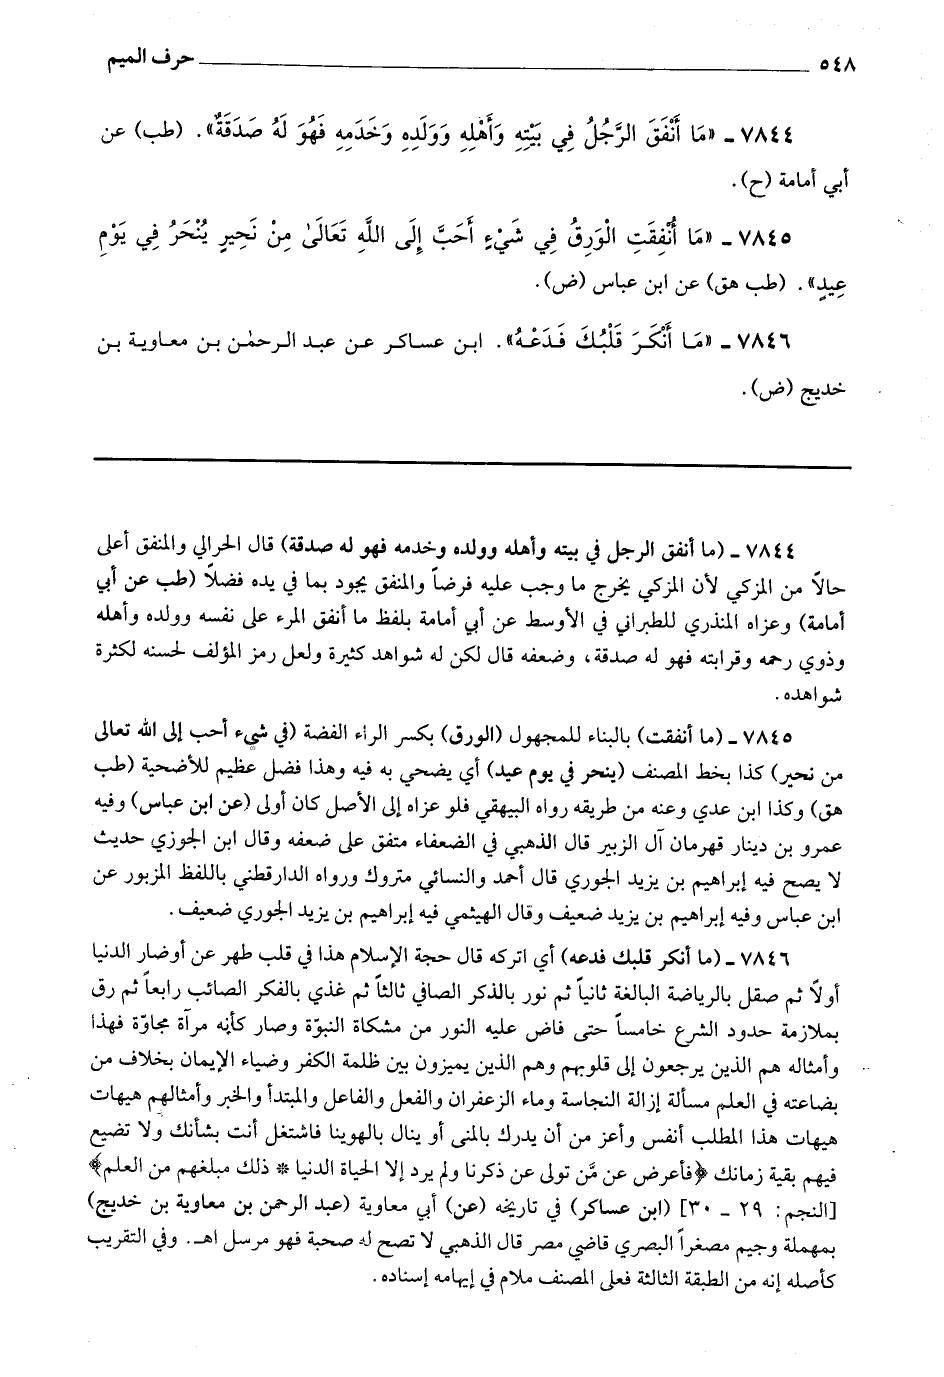 ٥٤٨ ـــــــــــــــــــــــــــــــــــــــــــــــــــــــــــــ حرف الميم
٧٨٤٤ ـ «مَا أَنْفَقَ الرَّجُلُ فِي بَيْتِهِ وَأَهْلِهِ وَوَلَدِهِ وَخَدَمِهِ فَهُوَ لَهُ صَدَقَةٌ». (طب) عن
أبي أمامة (ح).
٧٨٤٥ ـ «مَا أُنْفِقَتِ الْوَرِقُ فِي شَيْءٍ أَحَبَّ إِلَى اللَّهِ تَعَالَىٰ مِنْ نَحِيرٍ يُنْحَرُ فِي يَوْمِ
عِيدٍ». (طب هق) عن ابن عباس (ض).
٧٨٤٦ ـ «مَا أَنْكَرَ قَلْبُكَ فَدَعْهُ». ابن عساكر عن عبد الرحمٰن بن معاوية بن
خديج (ض).
٧٨٤٤ ـ (ما أنفق الرجل في بيته وأهله وولده وخدمه فهو له صدقة) قال الحرالي والمنفق أعلى
حالاً من المزكي لأن المزكي يخرج ما وجب عليه فرضاً والمنفق يجود بما في يده فضلاً (طب عن أبي
أمامة) وعزاه المنذري للطبراني في الأوسط عن أبي أمامة بلفظ ما أنفق المرء على نفسه وولده وأهله
وذوي رحمه وقرابته فهو له صدقة، وضعفه قال لكن له شواهد كثيرة ولعل رمز المؤلف لحسنه لكثرة
شواهده.
٧٨٤٥ ـ (ما أنفقت) بالبناء للمجهول (الورق) بكسر الراء الفضة (في شيء أحب إلى الله تعالى
من نحير) كذا بخط المصنف (ينحر في يوم عيد) أي يضحي به فيه وهذا فضل عظيم للأضحية (طب
هق) وكذا ابن عدي وعنه من طريقه رواه البيهقي فلو عزاه إلى الأصل كان أولى (عن ابن عباس) وفيه
عمرو بن دينار قهرمان آل الزبير قال الذهبي في الضعفاء متفق على ضعفه وقال ابن الجوزي حديث
لا يصح فيه إبراهيم بن يزيد الجوري قال أحمد والنسائي متروك ورواه الدارقطني باللفظ المزبور عن
ابن عباس وفيه إبراهيم بن يزيد ضعيف وقال الهيثمي فيه إبراهيم بن يزيد الجوري ضعيف.
٧٨٤٦ ـ (ما أنكر قلبك فدعه) أي اتركه قال حجة الإسلام هذا في قلب طهر عن أوضار الدنيا
أولاً ثم صقل بالرياضة البالغة ثانياً ثم نور بالذكر الصافي ثالثاً ثم غذي بالفكر الصائب رابعاً ثم رق
بملازمة حدود الشرع خامساً حتى فاض عليه النور من مشكاة النبوّة وصار كأنه مرآة مجلوّة فهذا
وأمثاله هم الذين يرجعون إلى قلوبهم وهم الذين يميزون بين ظلمة الكفر وضياء الإيمان بخلاف من
بضاعته في العلم مسألة إزالة النجاسة وماء الزعفران والفعل والفاعل والمبتدأ والخبر وأمثالهم هيهات
هيهات هذا المطلب أنفس وأعز من أن يدرك بالمنى أو ينال بالهوينا فاشتغل أنت بشأنك ولا تضيع
فيهم بقية زمانك ﴿فأعرض عن مَّن تولى عن ذكرنا ولم يرد إلا الحياة الدنيا * ذلك مبلغهم من العلم﴾
[النجم: ٢٩ ـ ٣٠] (ابن عساكر) في تاريخه (عن) أبي معاوية (عبد الرحمن بن معاوية بن خديج)
بمهملة وجيم مصغراً البصري قاضي مصر قال الذهبي لا تصح له صحبة فهو مرسل اهـ. وفي التقريب
كأصله إنه من الطبقة الثالثة فعلى المصنف ملام في إيهامه إسناده.